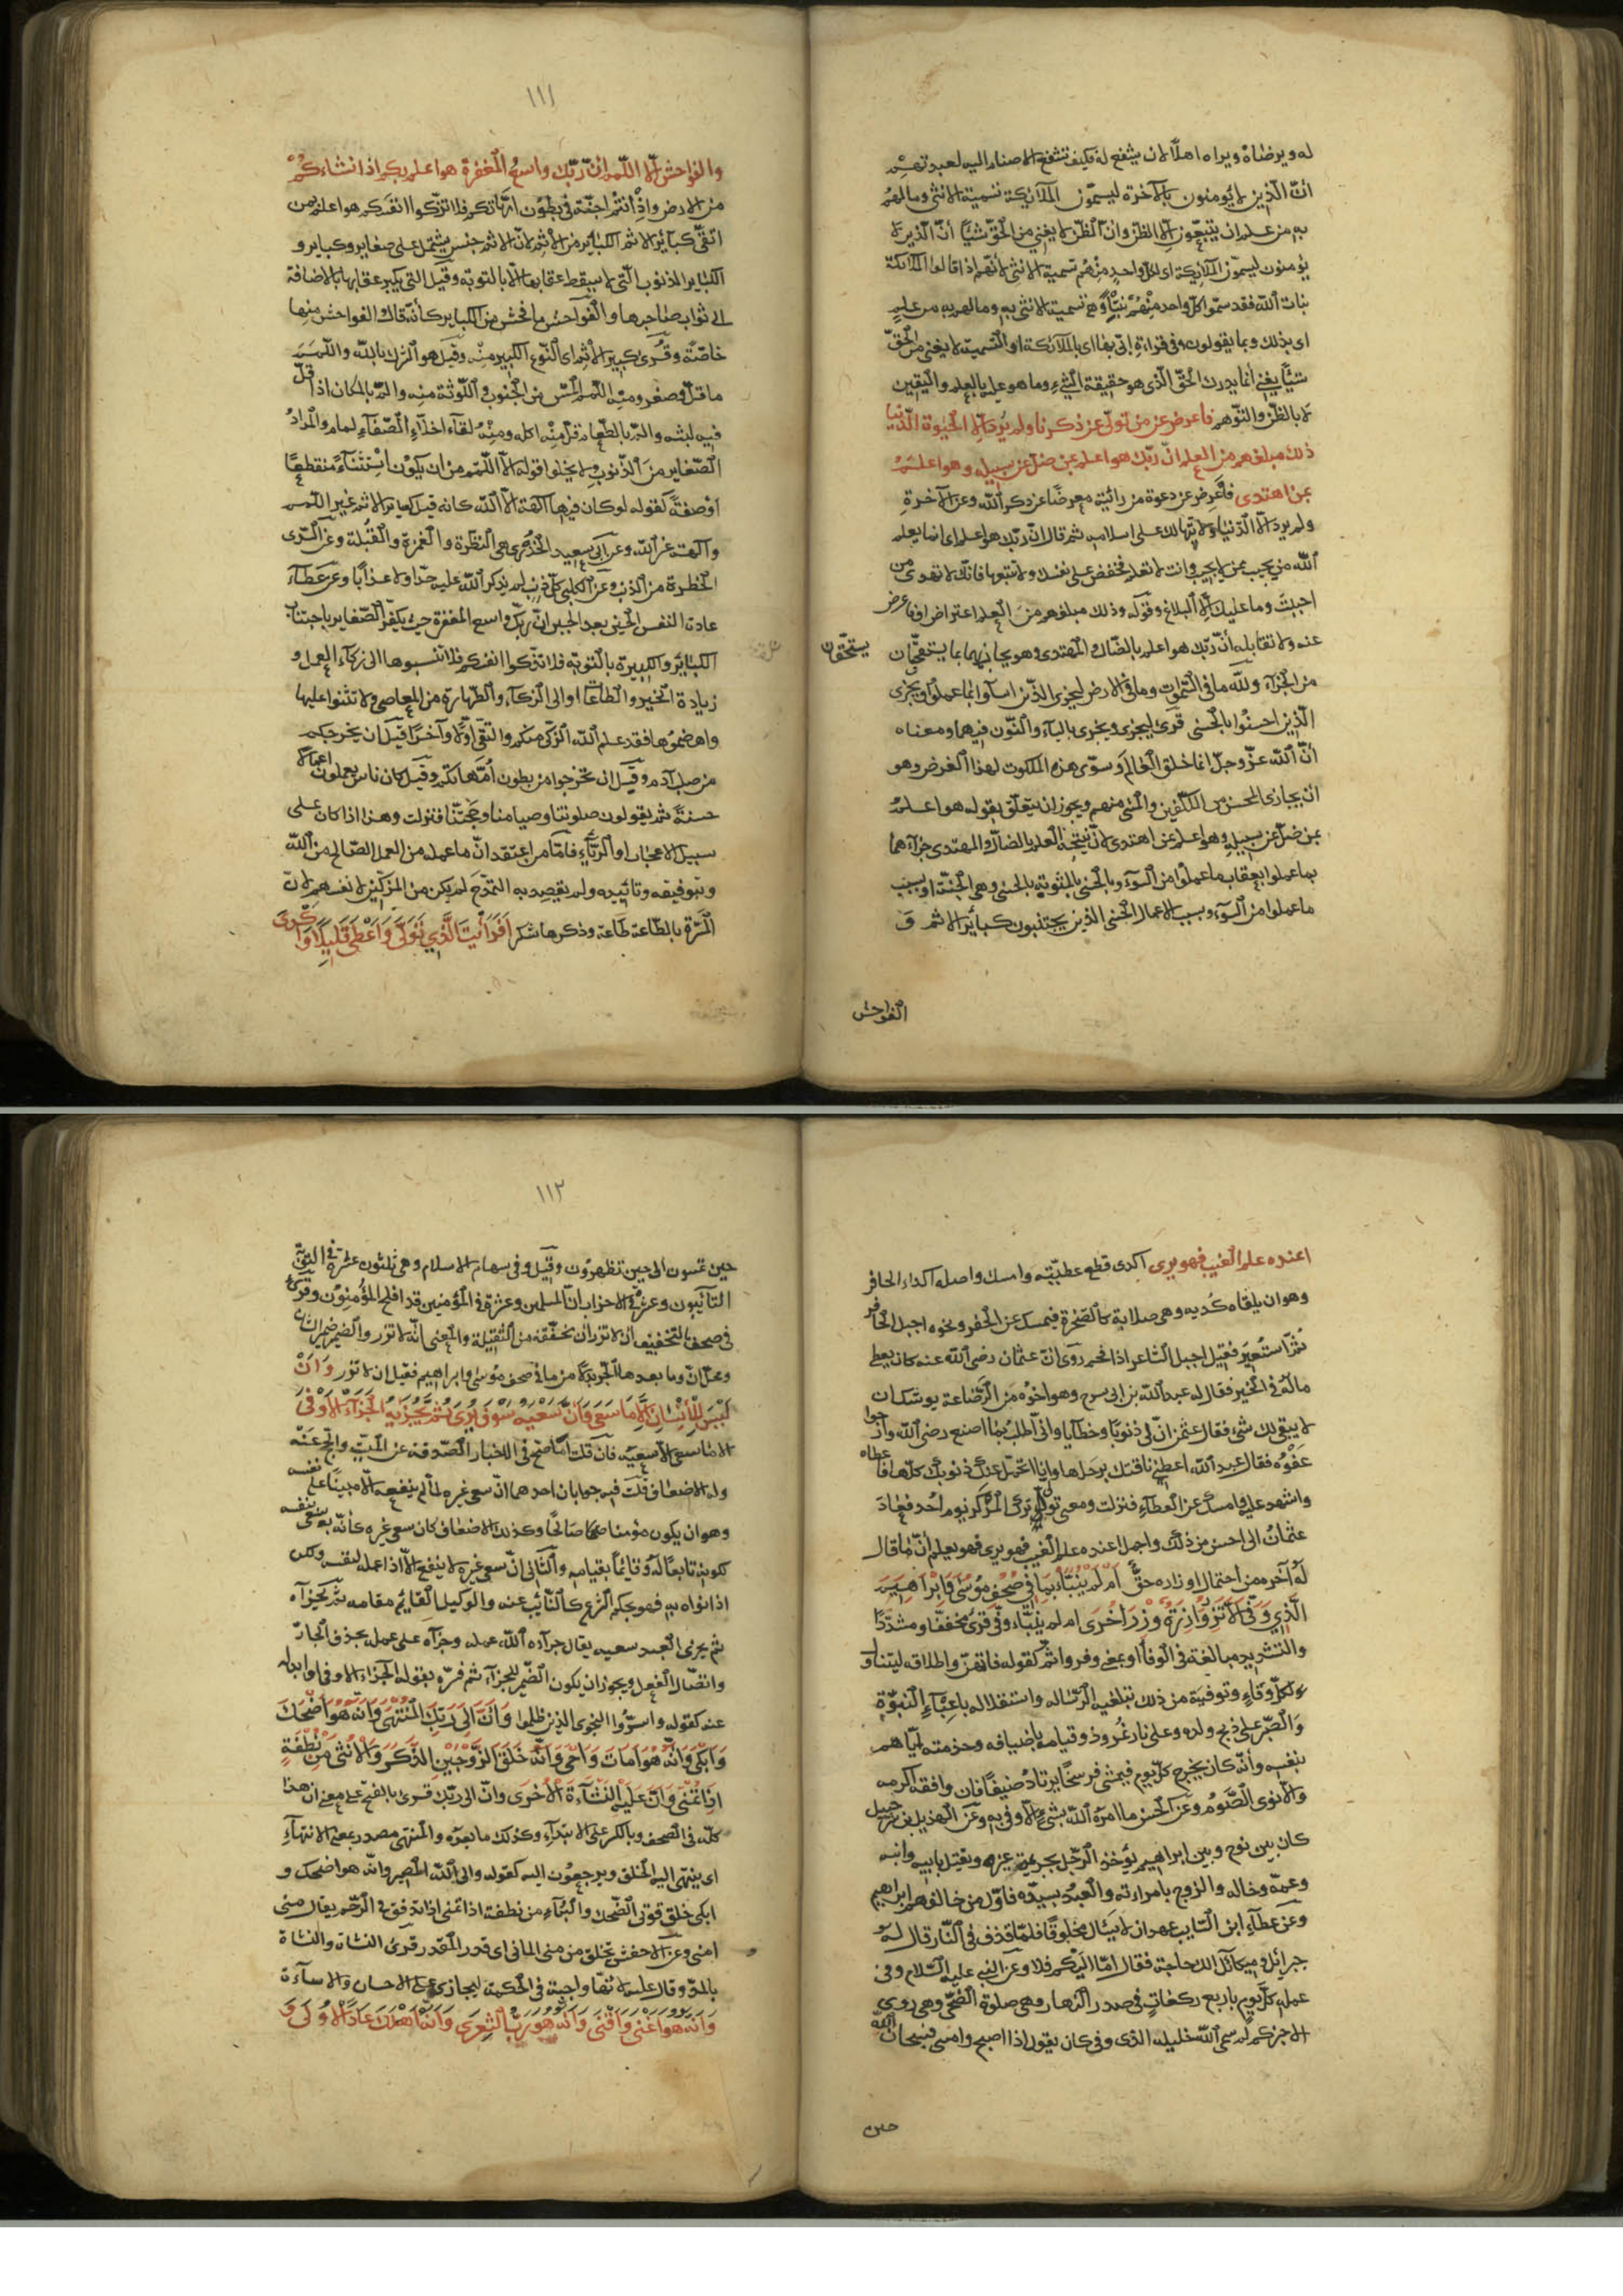 له ويرضاه ويراه اهلا لان يشفع له فكيف تشفع الاصنام اليه لعبدتهم
انّ الّذين لا يؤمنون بالآخرة ليسمّون الملائكة تسمية الانثى وما لهم
به من علم ان يتبعون الّا الظنّ وانّ الظنّ لا يغني من الحقّ شيأ انّ الّذين لا
يؤمنون ليسمّون الملايكة اى كلّ واحد منهم تسمية الانثى لانّهم اذا قالوا الملائكة
بنات الله فقد سمّوا كلّ واحد منهم بنتًا وهى تسمية الانثى به وما لهم به من علم
اى بذلك وبما يقولون وفى قراءة ابّى بها اى بالملائكة او التّسمية لا يغنى من الحقّ
شيأ يعنى انما يدرك الحقّ الّذى هو حقيقة الشّىء وما هو عليه بالعلم واليقين
لا بالظنّ والتّوهم فاعرض عن من تولّى عن ذكرنا ولم يُرد الّا الحيوة الدّنيا
ذلك مبلغهم من العلم انّ ربّك هو اعلم بمن ضلّ عن سبيله وهو اعلم
بمن اهتدى فاعرض عن دعوة من رائيته معرضًا عن ذكر الله وعن الآخرة
ولم يرد الّا الدّنيا ولا تتهالك على اسلامه ثم قال انّ ربّك هو اعلم اى انما يعلم
الله من يجيب ممن لا يجيب وانت لا تعلم فخفض على نفسك ولا تتعبها فانّك لا تهدى من
احببت وما عليك الّا البلاغ وقوله وذلك مبلغهم من العلم اعتراض او فاعرض
عنه ولا تقابله انّ ربّك هو اعلم بالضّال والمهتدى وهو يجازيهما بما يستحقّان
يستحقّان
من الجزآء ولله ما فى السّموات وما فى الارض ليجزى الّذين اسآؤا بما عملوا ويجزى
الّذين احسنوا بالحسنى قرئ ليجزى ويجزى باليآء والنّون فيهما ومعناه
انّ الله عزّ وجلّ انما خلق العالم وسوّى هذه الملكوت لهذا الغرض وهو
ان يجازى المحسن من المكلّفين والمسئ منهم ويجوز ان يتعلّق بقوله هو اعلم
بمن ضلّ عن سبيله وهو اعلم بمن اهتدى لانّ نتيجة العلم بالضالّ والمهتدى جزآءهما
بما عملوا بعقاب ما عملوا من السّوء وبالحسنى بالمثوبة بالحسنى وهى الجنّة او بسبب
ما عملوا من السّوء وبسبب الاعمال الحسنى الذين يجتنبون كبائر الاثم و
الفواحش
١١١
والفواحش الّا اللّمم انّ ربّك واسع المغفرة هو اعلم بكم اذ انشاءكم
من الارض واذ انتم اجنّة فى بطون امّهاتكم فلا تزكّوا انفسكم هو اعلم بمن
اتّقى كبآئر الاثم الكبائر من الاثم لانّ الاثم جنس يشتمل على صغاير وكباير و
الكباير الذنوب الّتى لا يسقط عقابها الّا بالتوبة وقيل التى يكبر عقابها بالاضافة
الى ثواب صاحبها والفواحش ما فحش من الكباير كانّه قال والفواحش منها
خاصّة وقرئ كبير الاثم اى النّوع الكبير منه وقيل هو الشّرك بالله واللّمم
ما قلّ وصغر ومنه اللّمم المسّ من الجنون واللّوثة منه والمّ بالمكان اذا قلّ
فيه لبثه والمّ بالطّعام قلّ منه اكله ومنه لقآء اخلّاء الصّفآء لمام والمراد
الصّغاير من الذّنوب ولا يخلوا قوله الّا اللّمم من ان يكون استثنآءً منقطعًا
او صفة كقوله لو كان فيهما آلهة الّا الله كانه قيل كباير الاثم غير اللّمم
وآلهة غير الله وعن ابى سعيد الخدرى هى النظرة والغمزة والقبلة وعن السّدى
الخطرة من الذنب وعن الكلبى كلّ ذنب لم يذكر الله عليه حدّا ولا عذابًا وعن عطآء
عادة النفس الحين بعد الحين انّ ربّك واسع المغفرة حيث يكفّر الصّغاير باجتناب
الكبائر والكبيرة بالتوبة فلا تزكّوا انفسكم فلا تنسبوها الى زكآء العمل و
زيادة الخير والطاعات او الى الزكآء والطّهارة من المعاصى ولا تثنوا عليها
واهضموها فقد علم الله الزّكى منكم والتقى اوّلا وآخرًا قبل ان يخرجكم
من صلب آدم وقبل ان تخرجوا من بطون امّهاتكم وقيل كان ناس يعملون اعمالا
حسنة ثم يقولون صلوتنا وصيامنا وحجّنا فنزلت وهذا اذا كان على
سبيل الاعجاب او الرّيآء فامّا من اعتقد انّ ما عمله من العمل الصّالح من الله
وبتوفيقه وتائييده ولم يقصد به التمدّح لم يكن من المزكّين لانفسهم لانّ
المسّرة بالطّاعة طاعة وذكرها شكر افرائيت الّذى تولّى واعطى قليلا واكدى
اعنده علم الغيب فهو يرى اكدى قطع عطيّته وامسك واصله اكداء الحافر
وهو ان يلقاه كدية وهى صلابة كالصّخرة فيمسك عن الحفر ونحوه اجبل الحافر
ثمّ استعير فقيل اجبل الشاعر اذا افحم روى انّ عثمان رضى الله عنه كان يعطى
ماله فى الخير فقال له عبد الله بن ابى سرح وهو اخوه من الرّضاعة يوشك ان
لا يبقى لك شئ فقال عثمن انّ لى ذنوبًا وخطايا وانّى اطلب بما اصنع رضى الله وارجوا
عفوه فقال عبد الله اعطنى ناقتك برحلها وانا اتحمّل عنك ذنوبك كلّها فاعطاه
واشهد عليه وامسك عن العطآء فنزلت ومعنى تولّى ترك المركز يوم احد فعاد
عثمان الى احسن من ذلك واجمل اعنده علم الغيب فهو يرى فهو يعلم انّ ما قال
له اخوه من احتمال اوزاره حقّ ام لم ينبّأ بما فى صحف موسى وابراهيم
الّذى وفّى الّا تزر وازرة وزر اخرى ام لم ينبّاء وفّى قرئ مخففّا ومشدّدًا
والتشديد مبالغة فى الوفآ او بمعنى وفر واتمّ كقوله فاتمهنّ واطلاقه ليتناول
كلّ وفاء وتوفية من ذلك تبليغه الرّسالة واستقلاله باعبآء النبوّة
والصّبر على ذبح ولده وعلى نار نمروذ وقيامه باضيافه وخدمته ايّاهم
بنفسه وانّه كان يخرج كلّ يوم فيمشى فرسخًا يرتاد ضيفًا فان وافقه اكرمه
والّا نوى الصّوم وعن الحسن ما امره الله بشئ الّا وفى به وعن الهذيل بن شرحبيل
كان بين نوح وبين ابراهيم يؤخذ الرّجل بجريمة غيره ويقتل بابيه وابنه
وعمّه وخاله والزوج بامراءته والعبد بسيدّه فاوّل من خالفهم ابراهيم
وعن عطآء ابن السّايب عهد ان لا يسال مخلوقًا فلمّا قذف فى النّار قال له
جبرائيل وميكائل الك حاجة فقال امّا اليكم فلا وعن النبى عليه السّلام وفى
عمله كلّ يوم باربع ركعات فى صدر النهار وهى صلوة الضّحى وهى روى
الا اخبركم لم سمى الله خليله الذى وفى كان يقول اذا اصبح وامسى فسبحان الله
حين
١١٢
حين تمسون الى حين تظهرون وقيل وفى سهام الاسلام وهى ثلثون عشرة فى التوبة
التآئبون وعشرة فى الاحزاب انّ المسلمين وعشرة فى المؤمنين قد افلح المؤمنون وقرئ
فى صحف بالتخفيف ان لا تزر ان مخفّفة من الثقيلة والمعنى انّه لا تزر والضمير ضمير الشان
ومحلّ انّ وما بعدها الجّر بدلا من ما فى صحف موسى وابراهيم فقيل ان لا تزر وان
ليس للانسان الّا ما سعى وانّ سعيه سوف يرى ثمّ يجزيه الجزآء الاوفى
الا ما سعى الّا سعيه فان قلت اما صحّ فى الاخبار الصّدقة عن الميّت والحّج عنه
وله الاضعاف قلت فيه جوابان احدهما انّ سعى غيره لمّا لم ينفعه الّا مبينًا على سعى نفسه
وهو ان يكون مؤمنا صالحًا وكذلك الاضعاف كان سعى غيره كانّه سعى نفسه
لكونه تابعًا له وقائمًا بقيامه والثانى انّ سعى غيره لا ينفع الّا اذا عمله لنفسه ولكن
اذا نواه به فهو بحكم الشرع كالنّائب عنه والوكيل القايم مقامه ثم يجزآه
ثم يجزى العبد سعيه يقال جزاءه الله عمله وجزآه على عمله بحذف الجارّ
واتصّال الفعل ويجوز ان يكون الضّمير للجزآء ثم فسّره بقوله الجزاء الاوفى او ابدله
عنه كقوله واسرّوا النجوى الذين ظلموا وانّ الى ربّك المنتهى وانّه هو اضحك
وابكى وانّه هو امات واحيى وانّه خلق الزّوجين الذّكر والانثى من نطفة
اذا تمنى وانّ عليه النشآءة الاخرى وانّ الى ربّك قرئ بالفتح على معنى ان هذا
كلّه فى الصّحف وبالكسر على الابتدآء وكذلك ما بعده والمنتهى مصدر بمعنى الانتهاء
اى ينتهى اليه الخلق ويرجعون اليه كقوله والى الله المصير وانّه هو اضحك و
ابكى خلق قوّتى الضّحك والبكآء من نطفة اذا تمنى اذا تدفق فى الرّحم يقال منى
امنى وعن الاخفش تخلق من منى المانى اى قدر المقدر قرئ النشاة والنشاة
بالمدّ وقال عليه لانّها واجبة فى الحكمة ليجازى على الاحسان والاساءة
وانّه هو اغنى واقنى وانّه هو ربّ الشعرى وانّه اهلك عادًا الاولى و